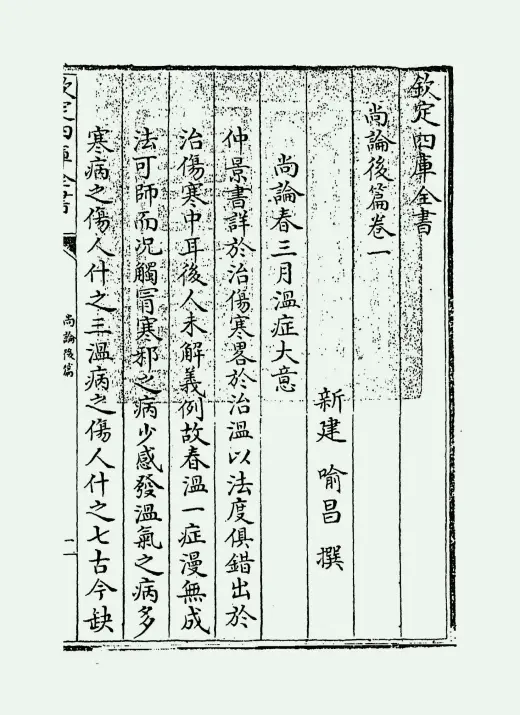 欽定四庫全書
尚論後篇卷一
新建 喻昌 撰
尚論春三月溫症大意
仲景書詳於治傷寒畧於治溫以法度俱錯出於
治傷寒中耳後人未解義例故春溫一症漫無成
法可師而况觸冐寒邪之病少感發溫氣之病多
寒病之傷人什之三溫病之傷人什之七古今缺
欽定四庫全書
尚論後篇
一